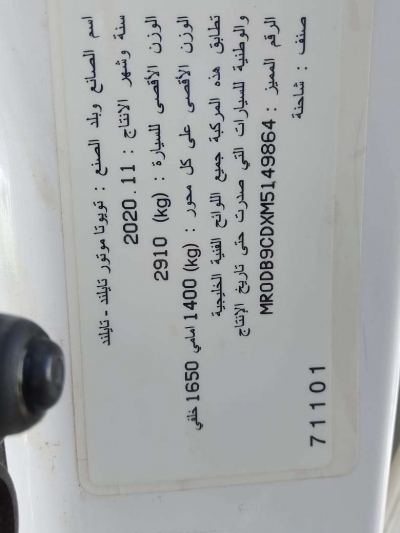 اسم الصانع وبلد الصنع : تويوتا موتور تايلند - تايلند
سنة وشهر الانتاج : 2020.11
الوزن الأقصى للسيارة : 2910 (kg)
الوزن الأقصى على كل محور : (kg) 1400 امامي 1650 خلفي
تطابق هذه المركبة جميع اللوائح الفنية الخليجية
والوطنية للسيارات التي صدرت حتى تاريخ الإنتاج
الرقم المميز : MR0DB9CDXM5149864
صنف : شاحنة
71101